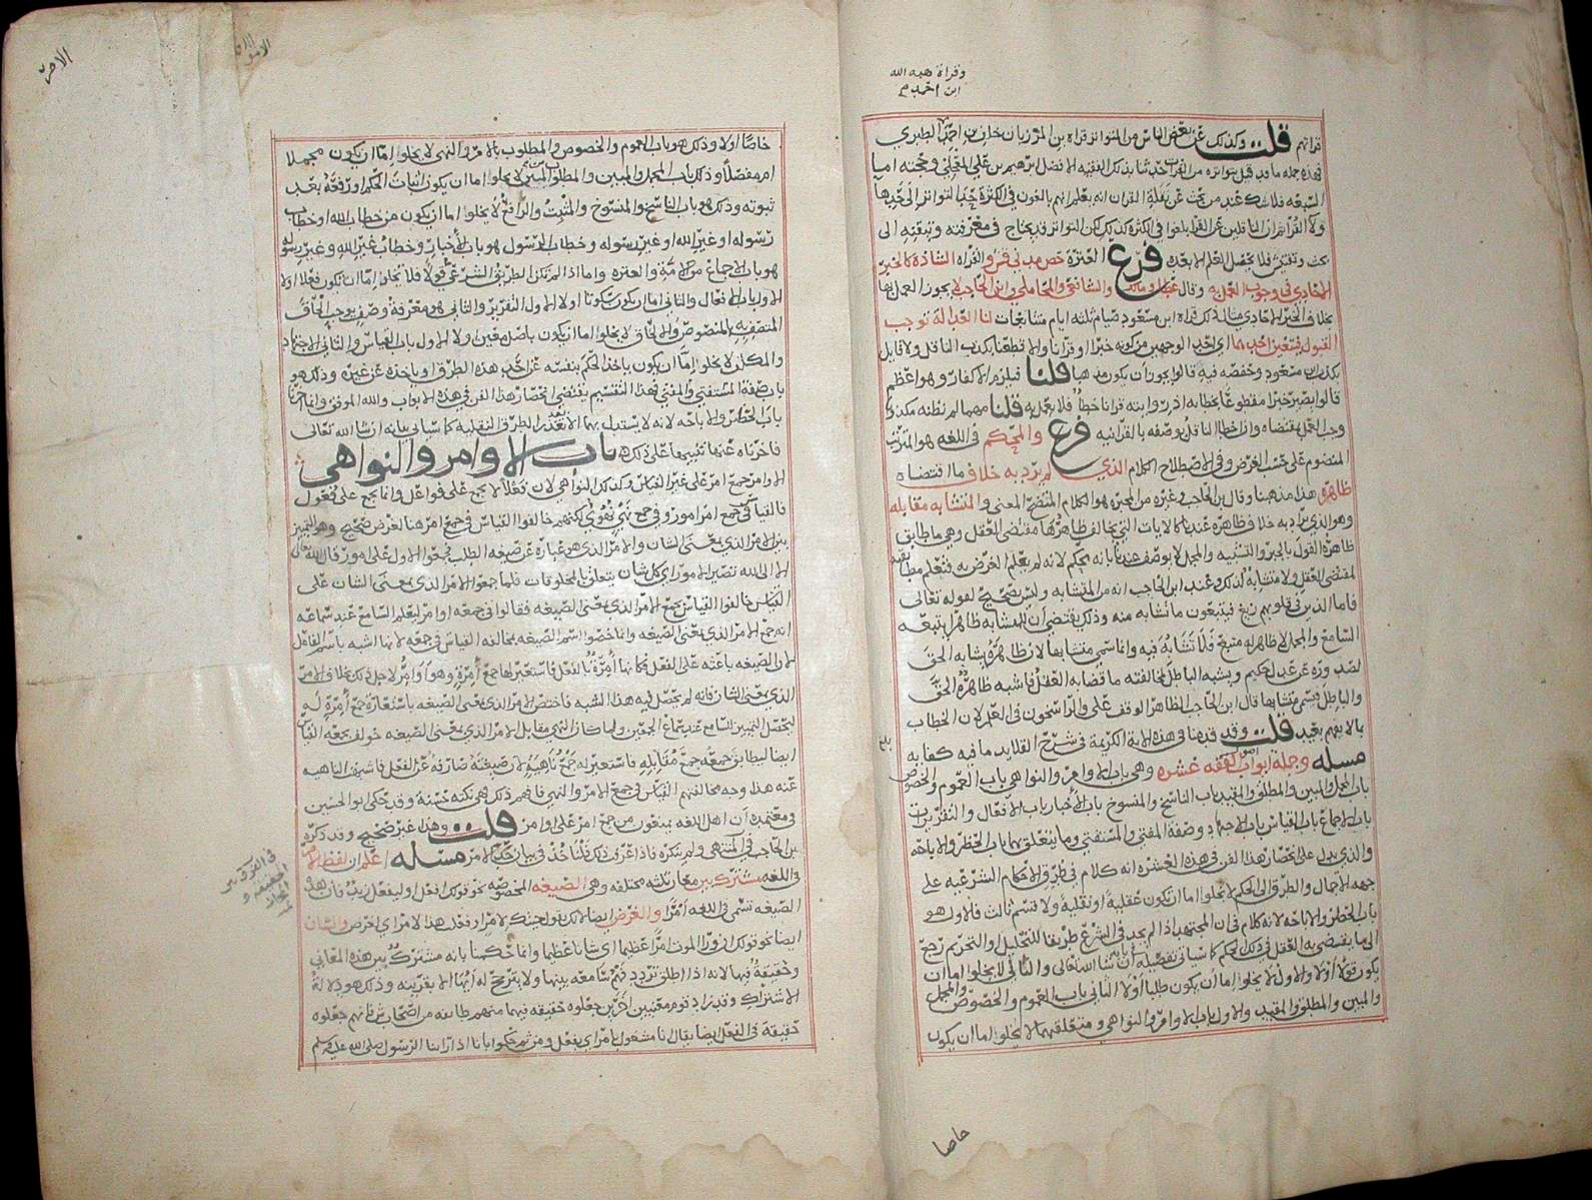 وقراة هبه الله
ابن احمد م
قراتهم قلت وكذلك عن بعض الناس من المتواتر قراه بن المرزبان خلف بن احمد الطبري
السبعه فلا شك عند من بحث عن نقلة القران انه يعلم انهم بالغون في الكثرة حد التواتر
بحث وتفتيش فلا يحصل العلم الا بعده فرع العترة وقراه الشاذة كالخبر
الاحادي في وجوب العمل به وقال والشافعي والمحاملي وابن الحاجب لا يجوز العمل بها
بخلاف الخبر الاحادي مثال ذلك قراه ابن مسعود صيام ثلثه ايام متتابعات لنا العدالة توجب
القبول فيتعين احدهما اي احد الوجهين من كونه خبرا او قرانا والا قطعنا بكذب الناقل ولا قايل
بكذب ابن مسعود قالوا يجوز ان يكون مذهبا قلنا
قالوا خبرا مقطوعا بخطايه اذ روايته قرانا خطا فلا يعمل به قلنا
وجب العمل بمقتضاه وان خطا الناقل بوصفه بالقرانيه فرع والمحكم في اللغه هو
وفي الاصطلاح الكلام الذي لم يرد به خلاف ما اقتضاه
ظاهره هذا مذهبنا وقال بن الحاجب وغيره من المجبره هو الكلام المتضح المعنى والمتشابه مقابله
وهو الذي يراد به خلاف ظاهره عندنا كالايات التي يخالف ظاهرها مقتضى العقل وهي ما طابق
ظاهره القول بالجبر والتشبيه والمجمل لا يوصف عندنا بانه محكم لانه لم يعلم الغرض به
لمقتضى العقل ولا متشابه لذلك وعند ابن الحاجب انه من المتشابه وليس بصحيح لقوله تعالى
فاما الذين في قلوبهم زيغ فيتبعون ما تشابه منه وذلك يقتضي ان للمتشابه ظاهرا يتبعه
السامع والمجمل لا ظاهر له متبع فلا تشابه فيه وانما سمي متشابها لان ظاهره يشابه الحق
لصدوره عن عدل حكيم ويشبه الباطل لمخالفته ما قضا به العقل فاشبه ظاهره الحق
والباطل فسمي متشابها قال ابن الحاجب الظاهر الوقف على والراسخون في العلم لان الخطاب
بما لا يفهم بعيد قلت وقد في هذه الاية الكريمة في شرح القلايد ما فيه كفايه
مسله وجملة ابواب اصول الفقه عشره وهي باب الاوامر والنواهي باب العموم والخصوص
باب المجمل والمبين والمطلق والمقيد باب الناسخ والمنسوخ باب الاخبار باب الافعال والتقريرات
باب الاجماع باب القياس باب الاجتهاد وصفة المفتي والمستفتي وما يتعلق بهما باب الحظر والاباحه
والذي يدل على انحصار هذا الفن في هذه العشره انه كلام في طرق الاحكام الشرعيه على
جهه الاجمال والطرق الى الحكم لا تخلوا اما ان تكون عقلية او نقلية ولا قسم ثالث فالاول هو
باب الحظر والاباحه لانه كلام في ان المجتهد اذا لم يجد في الشرع طريقا للتحليل والتحريم رجع
الى ما يقتضي به العقل في ذلك الحكم كما سياتي تفصيله ان شا الله تعالى والثاني لا يخلوا اما ان
يكون قولا او لا والاول لا يخلوا اما ان يكون طلبا او لا الثاني باب العموم والخصوص والمجمل
والمبين والمطلق والمقيد والاول باب الاوامر والنواهي ومتعلقهما لا يخلوا اما ان يكون
خاصا
خاصا او لا وذلك هو باب العموم والخصوص والمطلوب بالامر والنهي لا يخلوا اما ان يكون مجملا
او مفصلا وذلك باب المجمل والمبين والمطلوب لا يخلوا اما ان يكون اثبات الحكم او رفعه بعد
ثبوته وذلك هو باب الناسخ والمنسوخ والمثبت والرافع لا يخلوا اما ان يكون من خطاب الله او خطاب
رسوله او غير الله او غير رسوله وخطاب الرسول هو باب الاخبار وخطاب غير الله وغير رسوله
هو باب الاجماع من الامة والعتره واما اذا لم تكن الطريق الشرعي قولا فلا تخلوا اما ان تكون فعلا او لا
الاول باب الافعال والثاني اما ان يكون سكوتا او لا الاول التقرير والثاني هو معرفة وصف يوجب الحاق
المتصف به بالمنصوص والالحاق لا يخلوا اما ان يكون باصل معين او لا الاول باب القياس والثاني الاجتهاد
والمكلف لا يخلوا اما ان يكون ياخذ الحكم بنفسه عن احد هذه الطرق او ياخذه عن غيره وذلك هو
باب صفة المستفتي والمفتي فهذا التقسيم يقتضي انحصار هذا الفن في هذه الابواب والله الموفق وانما اخرنا
باب الحظر والاباحه لانه لا يستدل بهما الا بعد تعذر الطرق النقلية كما سياتي بيانه ان شا الله تعالى
فاخرناه عنها تنبيها على ذلك باب الاوامر والنواهي
الاوامر جمع امر على غير القياس وكذلك النواهي لان فعلا لا يجمع على فواعل وانما يجمع على فعول
فالقياس في جمع امر امور وفي جمع نهي نهوي لكنهم خالفوا القياس في جمع امر هنا لغرض صحيح وهو التمييز
بين الامر الذي بمعنى الشان والامر الذي هو عباره عن صيغه الطلب فجمعوا الاول على امور قال الله تعالى
الا الى الله تصير الامور اي كل شان يتعلق بالمخلوقات فلما جمعوا الامر الذي بمعنى الشان على
القياس خالفوا القياس بجمع الامر الذي بمعنى الصيغه فقالوا في جمعه اوامر ليعلم السامع عند سماعه
انه جمع الامر الذي بمعنى الصيغه وانما خصوا اسم الصيغه بمخالفه القياس في جمعه لانها اشبه باسم الفاعل
لان الصيغه باعثه على الفعل فكانها امرة بالفعل فاستعير لها جمع امرة وهو اوامر لاجل ذلك بخلاف الامر
الذي بمعنى الشان فانه لم يحصل فيه هذا الشبه فاختص الامر الذي بمعنى الصيغه باستعارة جمع امرة له
ليحصل التمييز للسامع عند سماع الجمعين ولما كان النهي مقابل الامر الذي بمعنى الصيغه خولف بجمعه القياس
ايضا ليطابق جمعه جمع مقابله فاستعير له جمع ناهية لان صيغته صارفه عن الفعل فاشبهت الناهيه
عنه هذا وجه مخالفتهم القياس في جمع الامر والنهي فافهم ذلك فهي نكته حسنة وقد حكى ابو الحسين
في معتمده ان اهل اللغه يمنعون من جمع امر على اوامر قلت وهذا غير صحيح وقد ذكره
بن الحاجب في المنتهى ولم ينكره فاذا عرفت ذلك فلناخذ في بيان حد الامر مسله اعلم ان لفظ الامر
في اللغه مشترك بين معان ثلثه مختلفه وهي الصيغه المخصوصه نحو قولك افعل او ليفعل زيد فان هذه
الصيغه تسمى في اللغه امرا والغرض ايضا لانك تقول جيتك لامر او فعل هذا لامر اي لغرض والشان
ايضا نحو قولك ان ورا الموت امرا عظيما اي شانا عظيما وانما حكمنا بانه مشترك بين هذه المعاني
وحقيقة فيها لانه اذا اطلق تردد فهم سامعه بينها ولا يترجح له ايها الا بقرينه وذلك هو دلالة
الاشتراك وقد زاد قوم معنيين اخرين جعلوه حقيقه فيهما منهم طايفه من اصحاب ش فانهم جعلوه
حقيقة في الفعل ايضا يقال انا مشغول بامر اي بفعل ومن ثم حكموا بانا اذا راينا الرسول صلى الله عليه وسلم